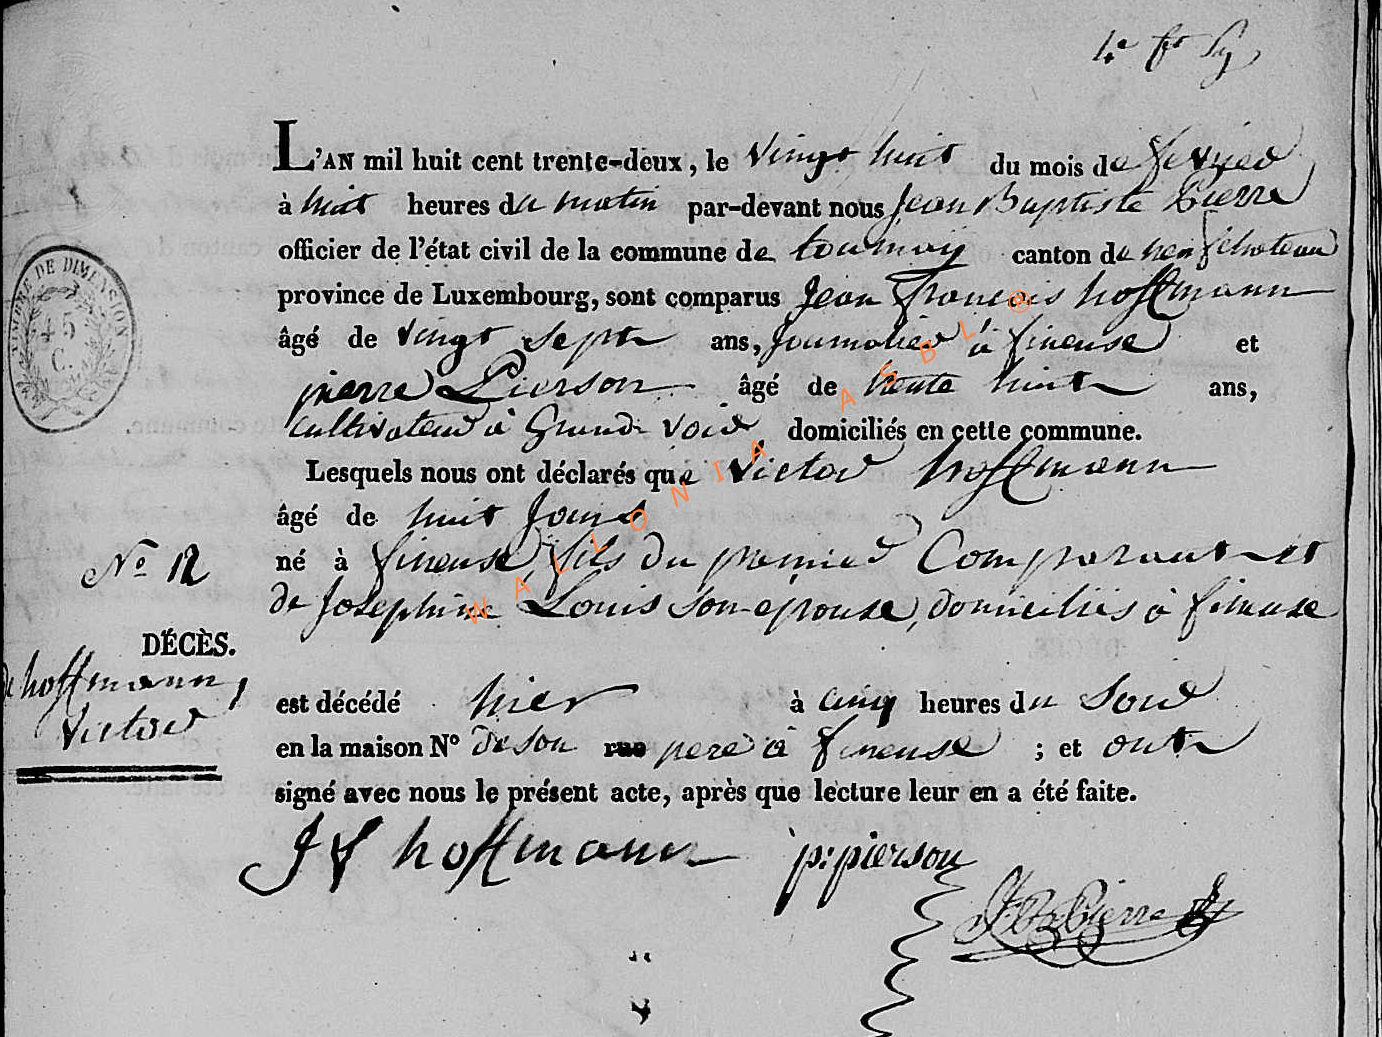 4e ft
L'AN mil huit cent trente-deux, le vingt huit du mois de fevrier
à huit heures du matin par-devant nous Jean Baptiste Pierre
officier de l'état civil de la commune de tournay canton de neufchateau
province de Luxembourg, sont comparus Jean François hoffmann
âgé de vingt sept ans, Journalier à fineuse et
pierre Pierson âgé de trente huit ans,
cultivateur à Grand voir domiciliés en cette commune.
Lesquels nous ont déclarés que Victor hoffmann
âgé de huit Jours
né à fineuse, fils du premier Comparant et
de Josephine Louis son epouse, domiciliés à fineuse
est décédé hier à cinq heures du Soir
en la maison N° de son rue pere à fineuse ; et ont
signé avec nous le présent acte, après que lecture leur en a été faite.
N° 12
DÉCÈS.
de hoffmann,
Victor
J f hoffmann p: pierson
J B Pierre
TIMBRE DE DIMENSION
45
C.
WALLONIA ASBL @